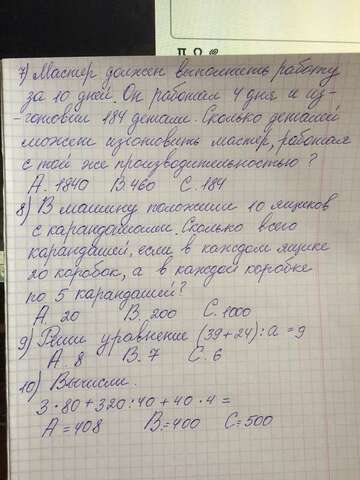 7) Мастер должен выполнить работу
за 10 дней. Он работал 4 дня и из-
-готовил 184 детали. Сколько деталей
может изготовить мастер, работая
с той же производительностью?
А. 1840 В. 460 С. 184
8) В машину положили 10 ящиков
с карандашами. Сколько всего
карандашей, если в каждом ящике
20 коробок, а в каждой коробке
по 5 карандашей?
А 20 В. 200 С. 1000
9) Реши уравнение (39+24):а=9
А. 8 В. 7 С. 6
10) Вычисли.
3·80+320:40+40·4=
А=408 В=400 С=500